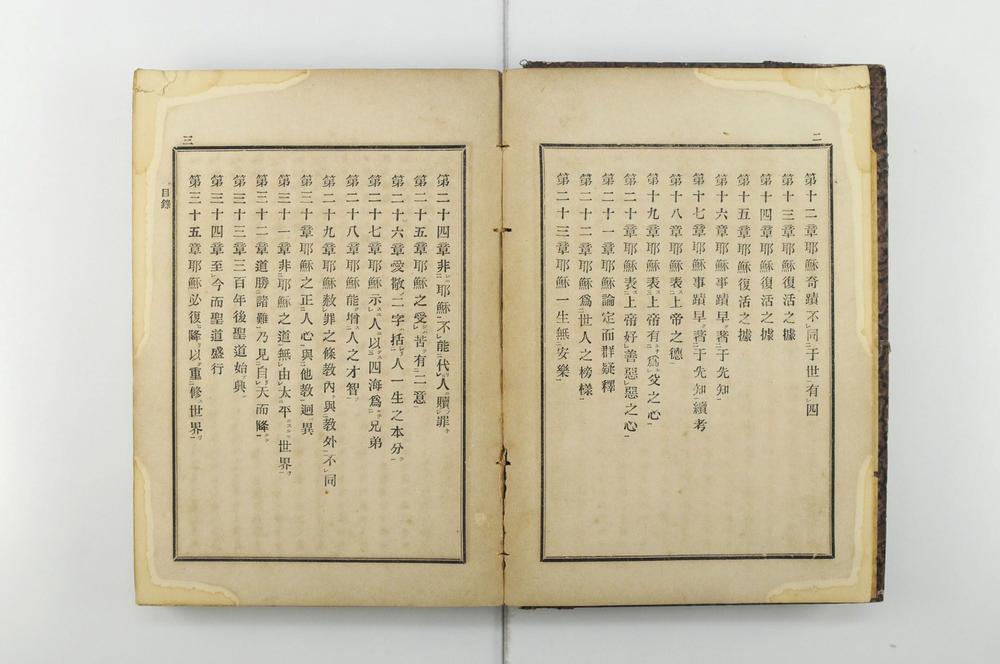 二
第十二章耶穌奇蹟不同于世有四
第十三章耶穌復活之據
第十四章耶穌復活之據
第十五章耶穌復活之據
第十六章耶穌事蹟早著于先知
第十七章耶穌事蹟早著于先知續考
第十八章耶穌表上帝之德
第十九章耶穌表上帝有爲父之心
第二十章耶穌表上帝好善惡惡之心
第二十一章耶穌論定而群疑釋
第二十二章耶穌爲世人之榜樣
第二十三章耶穌一生無安樂
三
目錄
第二十四章非耶穌不能代人贖罪
第二十五章耶穌之愛苦有二意
第二十六章愛敬二字括人一生之本分
第二十七章耶穌示人以四海爲兄弟
第二十八章耶穌能增人之才智
第二十九章耶穌赦罪之條教內與教外不同
第三十章耶穌之正人心與他教迥異
第三十一章非耶穌之道無由太平世界
第三十二章道勝諸難乃見自天而降
第三十三章三百年後聖道始興
第三十四章至今而聖道盛行
第三十五章耶穌必復降以重修世界